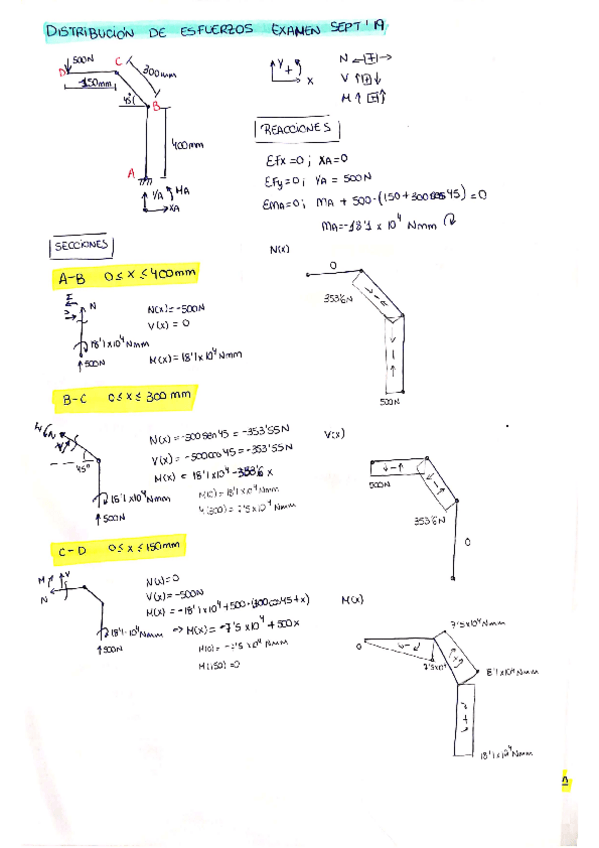 DISTRIBUCIÓN DE ESFUERZOS EXAMEN SEPT'19
500N
D
C
150mm
300mm
45°
B
400mm
A
YA
MA
XA
Y
+
X
N
V
M
REACCIONES
ΣFx=0; XA=0
ΣFy=0; YA = 500N
ΣMA=0; MA + 500·(150+300cos45)=0
MA=-18'1 x 10⁴ Nmm
SECCIONES
N(x)
A-B 0≤x≤400mm
N
N(x)=-500N
V(x) = 0
18'1x10⁴Nmm
500N
M(x)=18'1x10⁴Nmm
0
353'6N
500N
B-C 0≤x≤300 mm
45°
N(x)=-500sen45 = -353'55N
V(x)=-500cos45=-353'55N
M(x) = 18'1x10⁴-353'6x
M(0)=18'1x10⁴Nmm
M(300)=7'5x10⁴Nmm
18'1x10⁴Nmm
500N
V(x)
500N
353'6N
0
C-D 0≤x≤150mm
M
V
N
N(x)=0
V(x)=-500N
M(x)=-18'1x10⁴+500·(300cos45+x)
⇒ M(x)=-7'5x10⁴+500x
M(0)=-7'5x10⁴Nmm
M(150)=0
18'1·10⁴Nmm
500N
M(x)
0
7'5x10⁴
7'5x10⁴Nmm
8'1x10⁴Nmm
18'1x10⁴Nmm